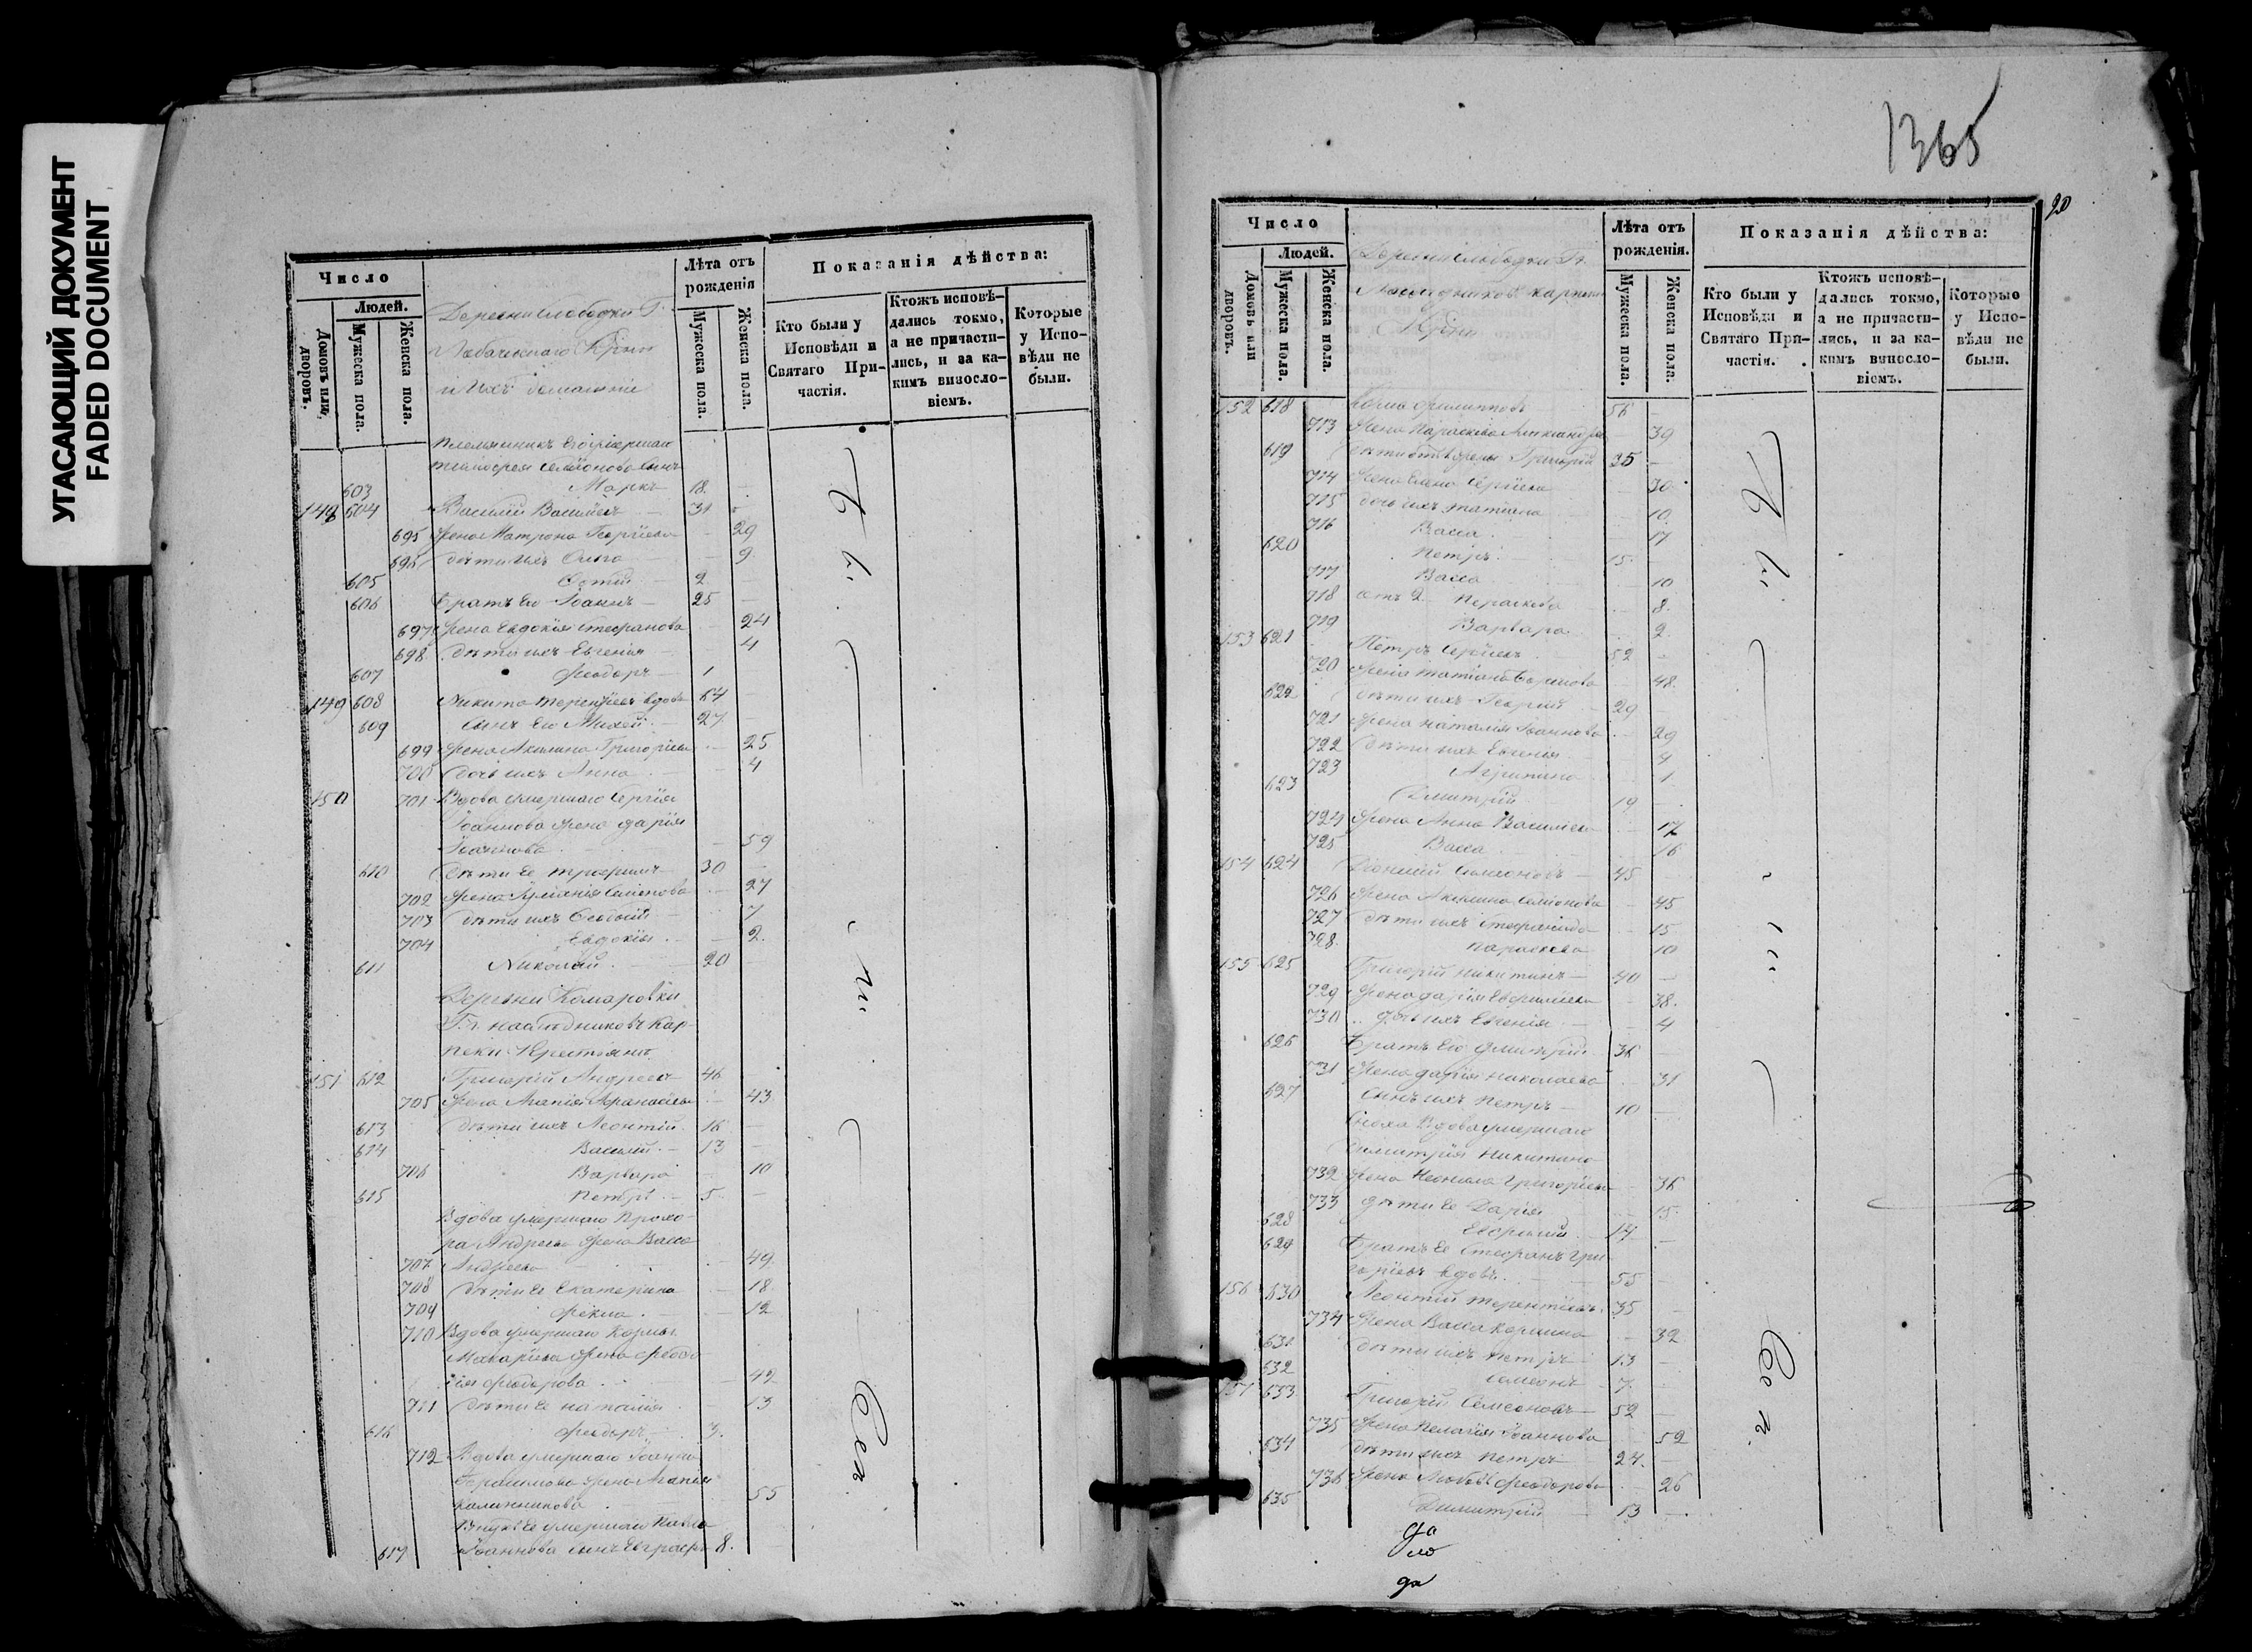 УГАСАЮЩИЙ ДОКУМЕНТ
FADED DOCUMENT
Число
Людей.
Домовъ или дворовъ.
Мужеска пола.
Женска пола.
Деревни Слободки Г.
и ихъ домашніе
Лѣта отъ рожденія
Мужеска пола.
Женска пола.
Показанія дѣйства:
Кто были у Исповѣди и Святаго Причастія.
Ктожъ исповѣдались токмо, а не причастились, и за какимъ винословіемъ.
Которые у Исповѣди не были.
Племянникъ Его умершаго
Семіонова Сынъ
603 Маркъ 18.
148 604 Василій Васильевъ 31
695 Жена Матрона Георгіева 29
696 Дѣти ихъ Ольга 9.
605 Фотій 2
606 Братъ Его Іоаннъ 25
697 Жена Евдокія Стефанова 24
698 Дѣти ихъ Евгенія 4
607 Феодоръ 1
149 608 Никита Терентіевъ вдовъ 64
609 Сынъ Его Михей 27
699 Жена Акилина Григоріева 25
700 Дочь ихъ Анна 4
150 701 Вдова умершаго Сергія
Іоаннова Жена Дарія
Іоаннова 59
610 Дѣти Ее Трофимъ 30
702 Жена 27
703 Дѣти ихъ 7
704 Евдокія 2
611 Николай 20
Деревни Комаровки
Г.г. наслѣдниковъ Кар-
пеки Крестьяне
151 612 Григорій Андреевъ 46
705 Жена Агапія Афанасіева 43
613 Дѣти ихъ Леонтій 16
614 Василій 13
706 Варвара 10
615 Петръ 5
Вдова умершаго Прохо-
ра Андреева Жена Васса
707 Андреева 49
708 Дѣти Ее Екатерина 18
709 Фекла 12
710 Вдова умершаго Козмы
Макаріева Жена Феодо-
сія Феодорова 42
711 Дѣти Ее Наталія 13
616 Феодоръ 3.
712 Вдова умершаго Іоанна
Герасимова Жена Агапія
Калинникова 55
Внукъ Ее умершаго Павла
617 Іоаннова Сынъ Евграфъ 8.
1365
20
Число
Людей.
Домовъ или дворовъ.
Мужеска пола.
Женска пола.
Деревни Слободки Г.г.
Наслѣдниковъ Карпеки
Лѣта отъ рожденія.
Мужеска пола.
Женска пола.
Показанія дѣйства:
Кто были у Исповѣди и Святаго Причастія.
Ктожъ исповѣдались токмо, а не причастились, и за какимъ винословіемъ.
Которые у Исповѣди не были.
152 618 Козма Филипповъ 56
713 Жена Параскева Александрова 39
619 Дѣти Григорій 25
714 Жена Елена Сергіева 30
715 Дочь ихъ Татіана 10
716 Васса 17
620 Петръ 15
717 Васса 10
718 Параскева 8
719 Варвара 2
153 621 Петръ Сергіевъ 52
720 Жена Татіана 48.
622 Дѣти ихъ Георгій 29
721 Жена Наталія Іоаннова 29
722 Дѣти ихъ Евгенія 4
723 Агрипина 1
623 Димитрій 19
724 Жена Анна Василіева 17
725 Васса 16
154 624 Діонисій Симеоновъ 45
726 Жена Акилина Семіонова 45
727 Дѣти ихъ Стефанида 15
728. Параскева 10
155 625 Григорій Никитинъ 40
729 Жена Дарія Евфиміева 38.
730 Дочь ихъ Евгенія 4
626 Братъ Его Димитрій 36
731 Жена Дарія Николаева 31
627 Сынъ ихъ Петръ 10
Сноха Вдова умершаго
Димитрія Никитина
732 Жена Неонила Григоріева 36
733 Дѣти Ее Дарія 15
628 Евфимій 14
629 Братъ Ее Стефанъ Гри-
горіевъ вдовъ 55
156 630 Леонтій Терентіевъ 35
734 Жена Васса Козмина 32
631 Дѣти ихъ Петръ 13
632 Симеонъ 7
157 633 Григорій Семеоновъ 52
735 Жена Пелагія Іоаннова 52
634 Дѣти ихъ Петръ 24.
736 Жена Любовь Феодорова 26
635 Димитрій 13